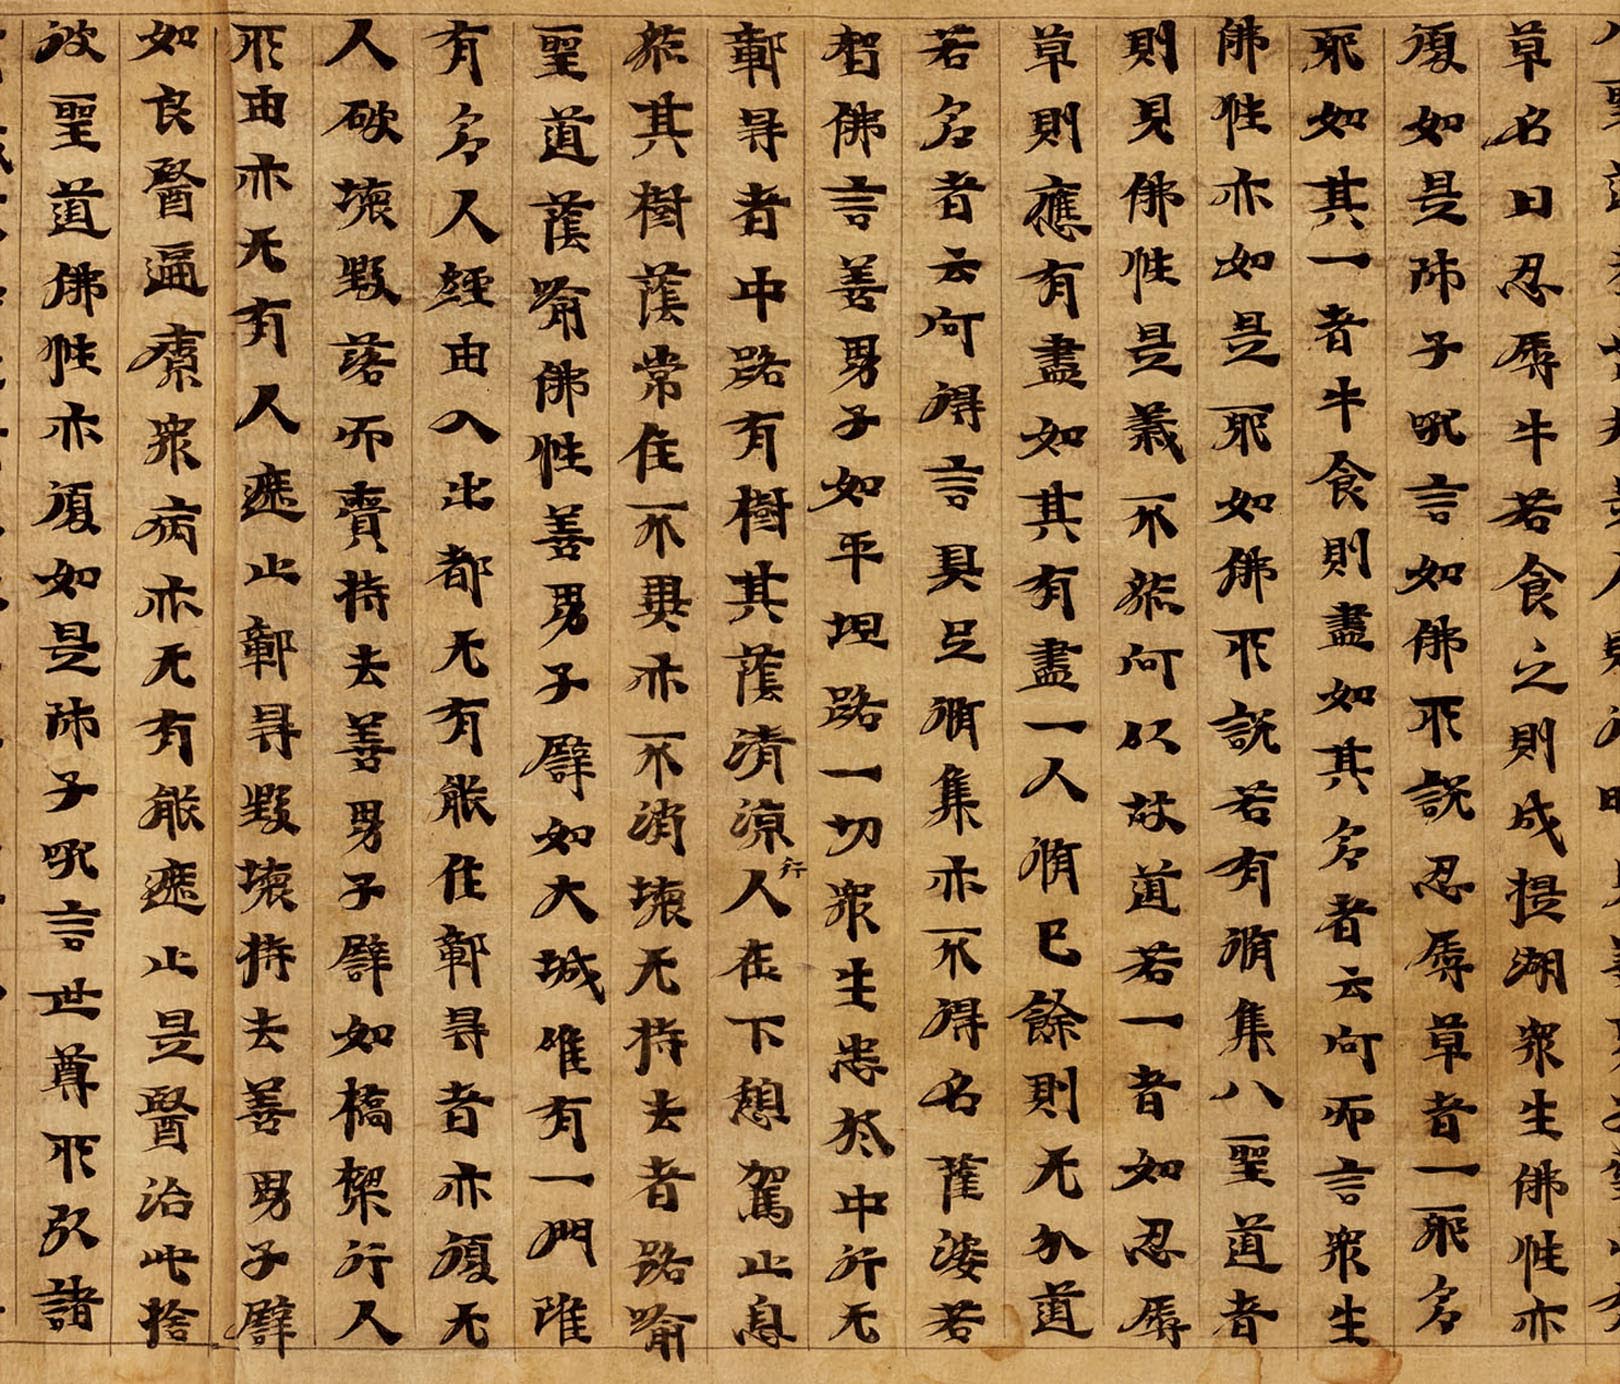 草名曰忍辱牛若食之則成提湖衆生佛性亦
復如是師子吼言如佛所說忍辱草者一耶多
耶如其一者牛食則盡如其多者云何而言衆生
佛性亦如是耶如佛所說若有脩集八聖道者
則見佛性是義不然何以故道若一者如忍辱
草則應有盡如其有盡一人脩已餘則无分道
若多者云何得言具足脩集亦不得名薩婆若
智佛言善男子如平坦路一切衆生悉於中行无
鄣导者中路有樹其蔭清涼行人在下憩駕止息
然其樹蔭常住不異亦不消壞无持去者路喻
聖道蔭喻佛性善男子譬如大城唯有一門雖
有多人經由入出都无有能住鄣导者亦復无
人破壞毀落而賣持去善男子譬如橋樑行人
所由亦无有人遮止鄣导毀壞持去善男子譬
如良醫遍療衆病亦无有能遮止是醫治此捨
彼聖道佛性亦復如是師子吼言世尊所引諸